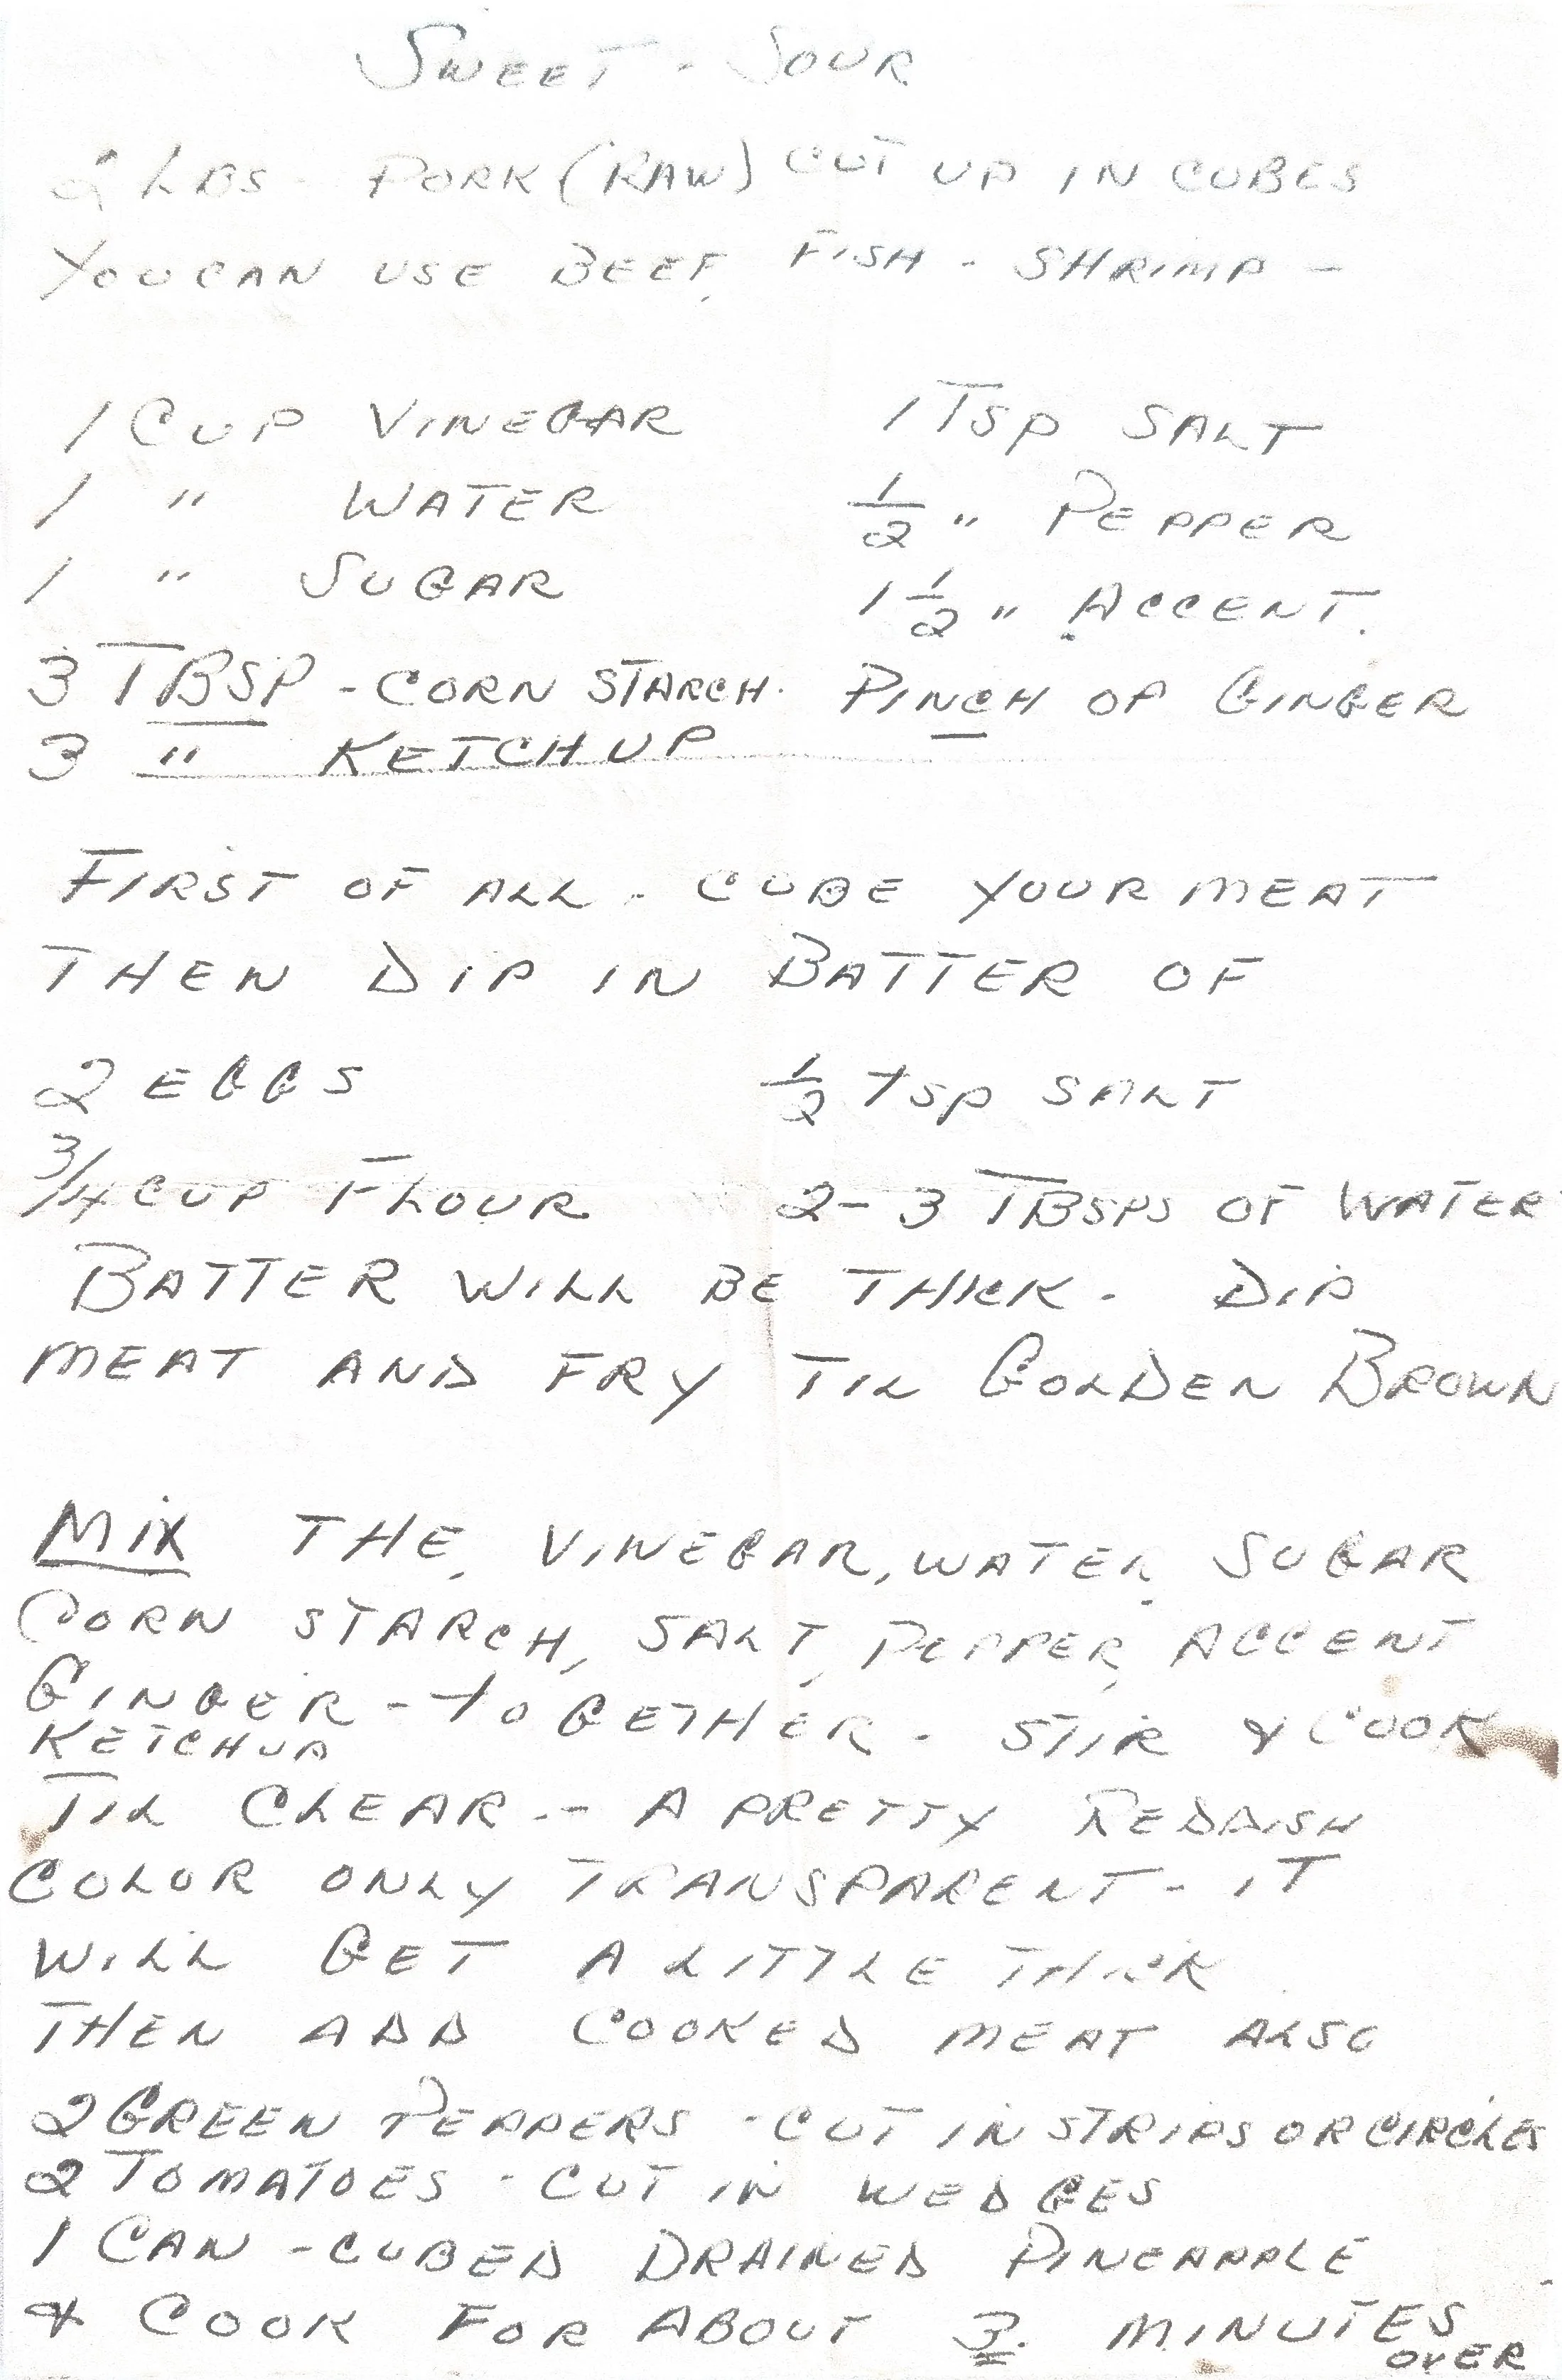 SWEET - SOUR
2 LBS - PORK (RAW) CUT UP IN CUBES
YOU CAN USE BEEF, FISH - SHRIMP -
1 CUP VINEGAR 1 TSP SALT
1 " WATER 1/2 " PEPPER
1 " SUGAR 1 1/2 " ACCENT.
3 TBSP - CORN STARCH. PINCH OF GINGER
3 " KETCHUP
FIRST OF ALL - CUBE YOUR MEAT
THEN DIP IN BATTER OF
2 EGGS 1/2 TSP SALT
3/4 CUP FLOUR 2-3 TBSPS OF WATER
BATTER WILL BE THICK - DIP
MEAT AND FRY TIL GOLDEN BROWN
MIX THE, VINEGAR, WATER, SUGAR
CORN STARCH, SALT, PEPPER, ACCENT
GINGER - TOGETHER - STIR & COOK
KETCHUP
TIL CLEAR -- A PRETTY REDDISH
COLOR ONLY TRANSPARENT - IT
WILL GET A LITTLE THICK
THEN ADD COOKED MEAT ALSO
2 GREEN PEPPERS - CUT IN STRIPS OR CIRCLES
2 TOMATOES - CUT IN WEDGES
1 CAN - CUBED DRAINED PINEAPPLE
& COOK FOR ABOUT 3. MINUTES
OVER